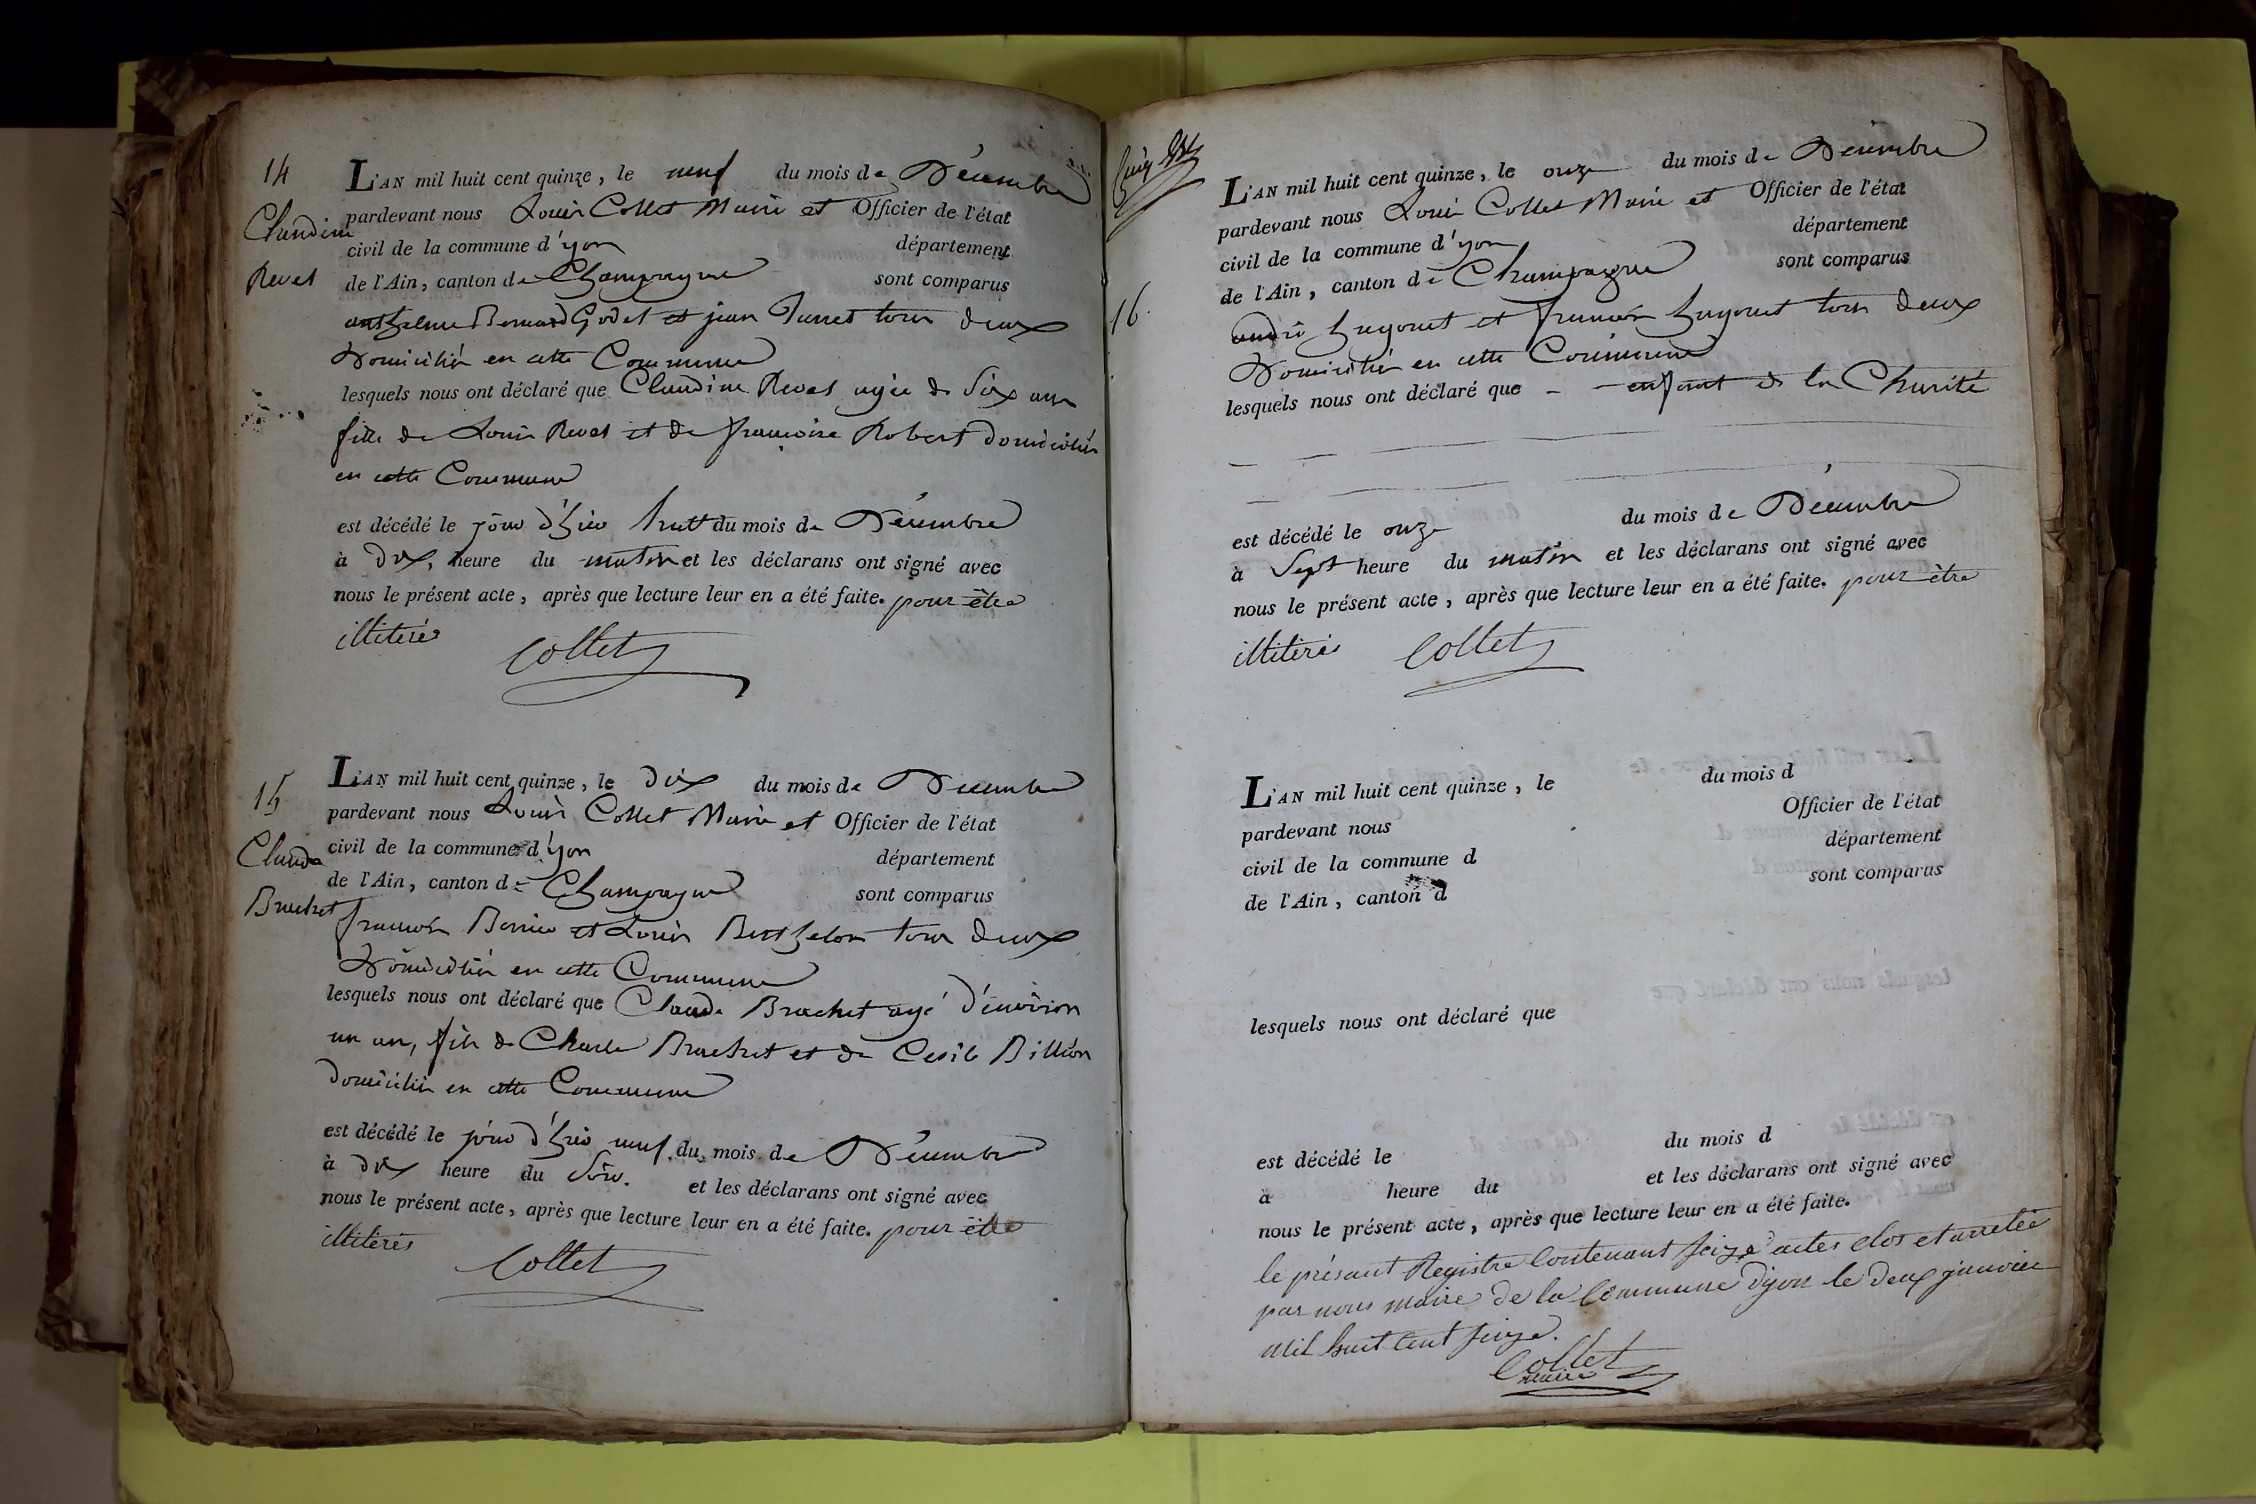 14
Claudine
Revet
L'AN mil huit cent quinze, le neuf du mois de Décembre
pardevant nous Louis Collet Maire et Officier de l'état
civil de la commune d'yon département
de l'Ain, canton de Champagne sont comparus
anthelme Bernard Godet et jean Turret tous deux
Domiciliés en cette Commune
lesquels nous ont déclaré que Claudine Revet agée de Six ans
fille de Louis Revet et de françoise Robert domiciliés
en cette Commune
est décédé le jour d'hier huit du mois de Décembre
à dix heure du matin et les déclarans ont signé avec
nous le présent acte, après que lecture leur en a été faite. pour être
illiterés
Collet
15
Claude
Brachet
L'AN mil huit cent quinze, le dix du mois de Décembre
pardevant nous Louis Collet Maire et Officier de l'état
civil de la commune d'yon département
de l'Ain, canton de Champagne sont comparus
francois et Louis Berthelon tous deux
Domiciliés en cette Commune
lesquels nous ont déclaré que Claude Brachet agé d'environ
un an, fils de Charle Brachet et de Cesile Billion
domiciliés en cette Commune
est décédé le jour d'hier neuf du mois de Décembre
à dix heure du Soir. et les déclarans ont signé avec
nous le présent acte, après que lecture leur en a été faite. pour être
illiterés
Collet
16.
L'AN mil huit cent quinze, le onze du mois de Décembre
pardevant nous Louis Collet Maire et Officier de l'état
civil de la commune d'yon département
de l'Ain, canton de Champagne sont comparus
andré hugonet et francois hugonet tous deux
Domiciliés en cette Commune
lesquels nous ont déclaré que - - enfant de la Charité
est décédé le onze du mois de Décembre
à Sept heure du matin et les déclarans ont signé avec
nous le présent acte, après que lecture leur en a été faite. pour être
illiterés
Collet
L'AN mil huit cent quinze, le du mois d
pardevant nous Officier de l'état
civil de la commune d département
de l'Ain, canton d sont comparus
lesquels nous ont déclaré que
est décédé le du mois d
à heure du et les déclarans ont signé avec
nous le présent acte, après que lecture leur en a été faite.
le présant Registre Contenant Seize actes clos et arretée
par nous maire de la Commune d'yon le deux janvier
mil huit Cent Seize.
Collet
maire